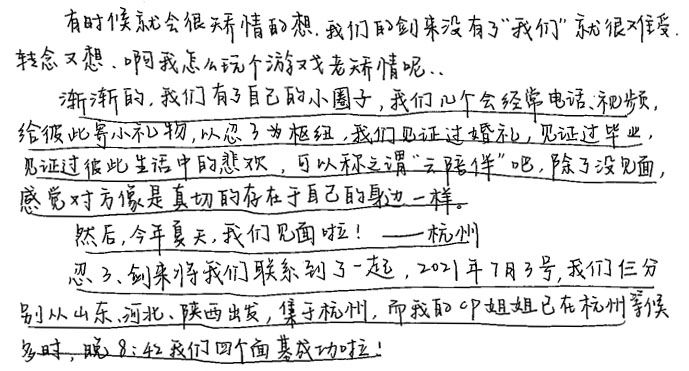 有时候就会很矫情的想，我们的剑来没有了“我们”就很难受.
转念又想、啊我怎么玩个游戏老矫情呢..
渐渐的，我们有了自己的小圈子，我们几个会经常电话、视频，
给彼此寄小礼物，以忍了为枢纽，我们见证过婚礼，见证过毕业，
见证过彼此生活中的悲欢，可以称之谓“云陪伴”吧，除了没见面，
感觉对方像是真切的存在于自己的身边一样。
然后，今年夏天，我们见面啦！——杭州
忍3、剑来将我们联系到了一起，2021年7月3号，我们仨分
别从山东、河北、陕西出发，集于杭州，而我的CP姐姐已在杭州等候
多时，晚8:42我们四个面基成功啦！